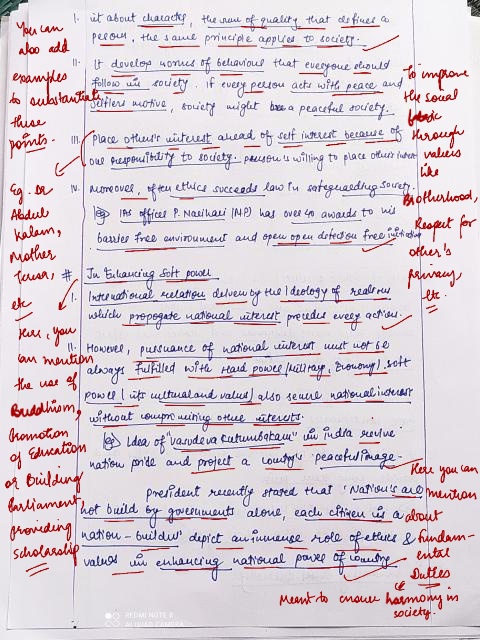 I. it about character, the sum of quality that defines a
person, the same principle applies to society.
II. It develop norms of behaviour that everyone should
follow in society. if every person acts with peace and
selfless motive, society might be a peaceful society.
III. Place other's interest ahead of self interest because of
our responsibility to society. person is willing to place others interest
IV. Moreover, often ethics succeeds law in safeguarding society.
Eg IAS officer P. Narihari (MP) has over 40 awards to his
barrier free environment and open open defection free initiative
# In Enhancing Soft power
I. International relation driven by the ideology of realism
which propogate national interest precedes every action.
II. However, pursuance of national interest must not be
always fulfilled with Hard power (Military, Economy). soft
power (its cultural and value) also secure national interest
without compromising other interests.
Eg Idea of "vasudeva kutumbakam" in india revive
nation pride and project a country's peaceful image.
president recently stated that 'Nation's are
not build by governments alone, each citizen is a
nation-builder' depict an immense role of ethics &
values in enhancing national power of country
You can
also add
examples
to substantiate
these
points.
Eg. Dr
Abdul
Kalam,
Mother
Teresa,
etc
Here, you
can mention
the use of
Buddhism,
Promotion
of Education
or Building
Parliament
providing
scholarship
To improve
the social
through
values
like
Brotherhood,
Respect for
other's
privacy
etc.
Here you can
mention
about
Fundam-
ental
Duties
Meant to ensure harmony in
society.
REDMI NOTE 8
AI QUAD CAMERA